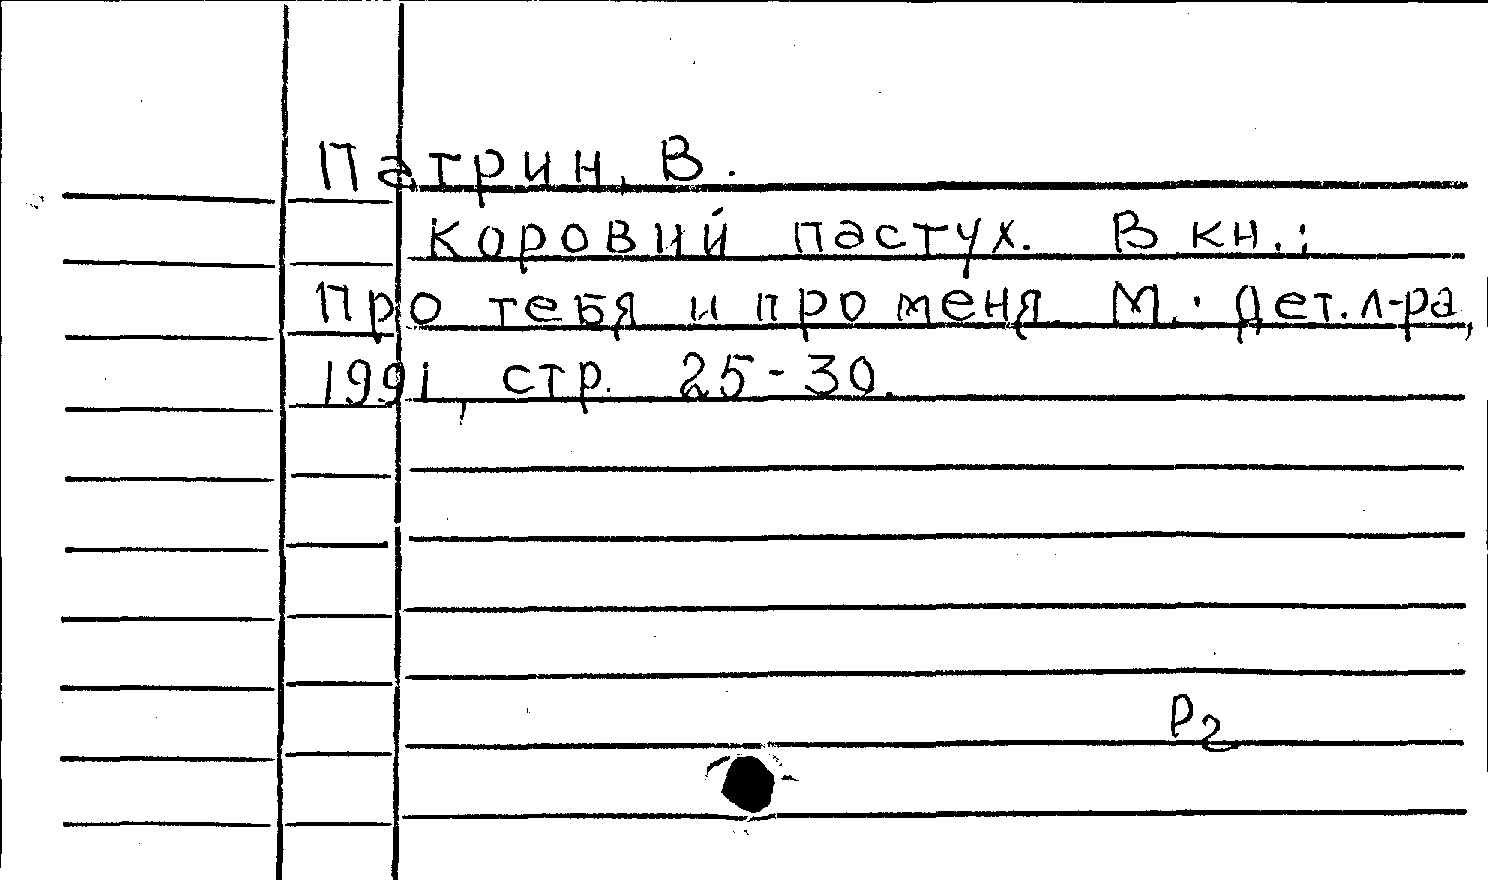 Патрин, В.
Коровий пастух. В кн.:
Про тебя и про меня. М.: Дет.л-ра,
1991, стр. 25-30.
Р2